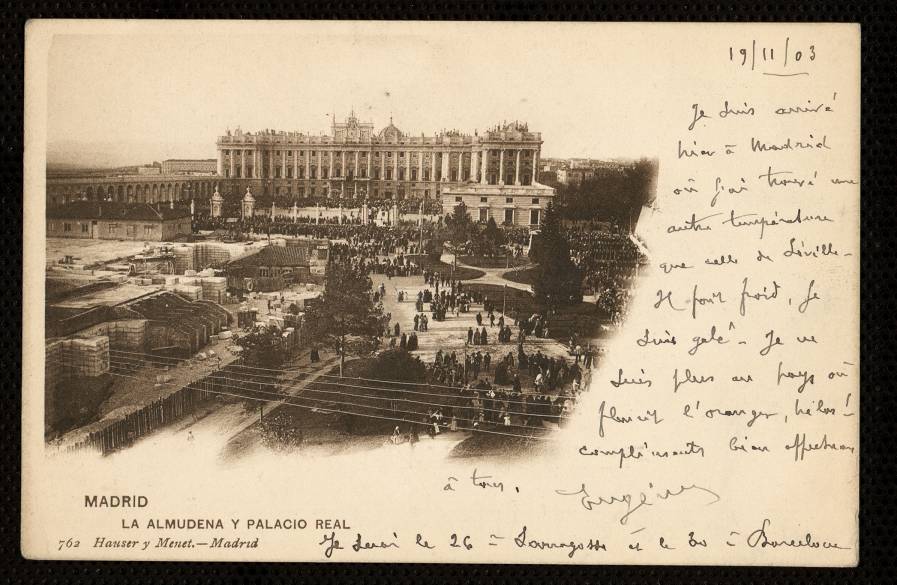 19/11/03
Je suis arrivé
hier à Madrid
où j'ai trouvé une
autre température
que celle de Séville -
Il fait froid, je
suis gelé - Je ne
suis plus au pays où
fleurit l'oranger, hélas!
compliments bien affectueux
à tous.
Eugène
MADRID
LA ALMUDENA Y PALACIO REAL
762 Hauser y Menet.—Madrid
Je serai le 26 à Sarragosse et le 30 à Barcelone